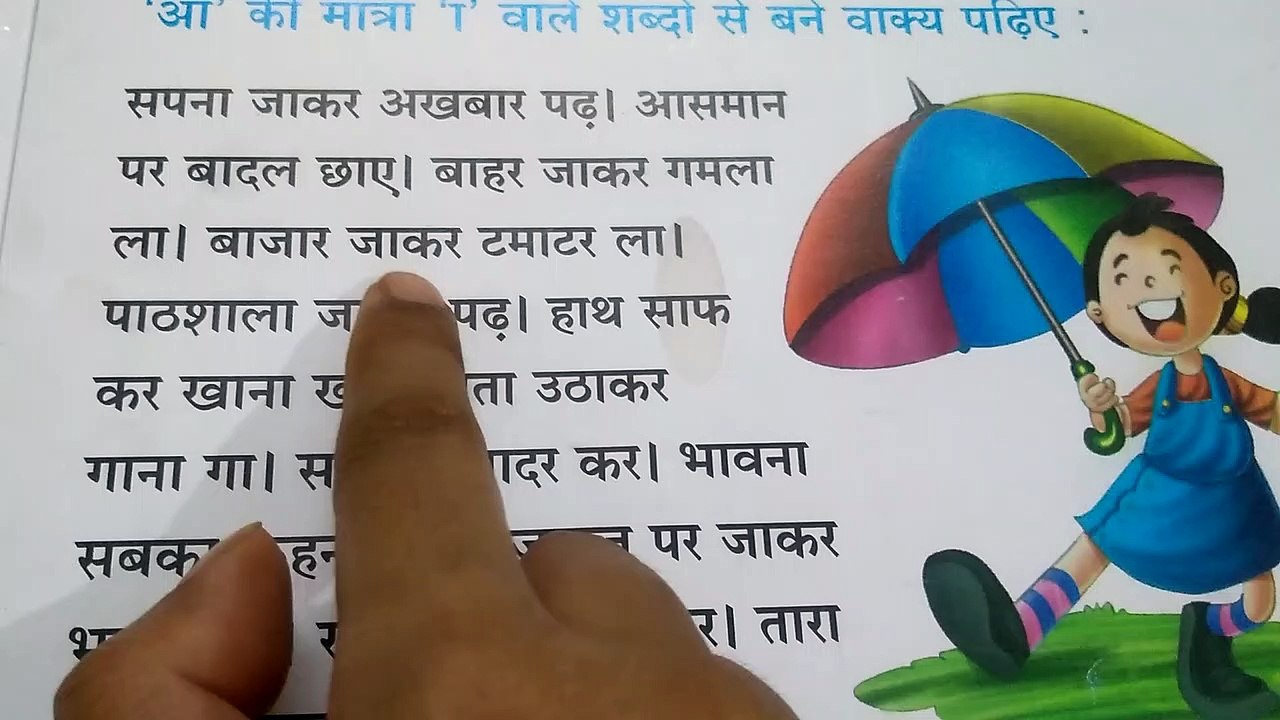 'आ' की मात्रा 'ा' वाले शब्दों से बने वाक्य पढ़िए :
सपना जाकर अखबार पढ़। आसमान
पर बादल छाए। बाहर जाकर गमला
ला। बाजार जाकर टमाटर ला।
पाठशाला पढ़। हाथ साफ
कर खाना उठाकर
गाना गा। कर। भावना
पर जाकर
तारा